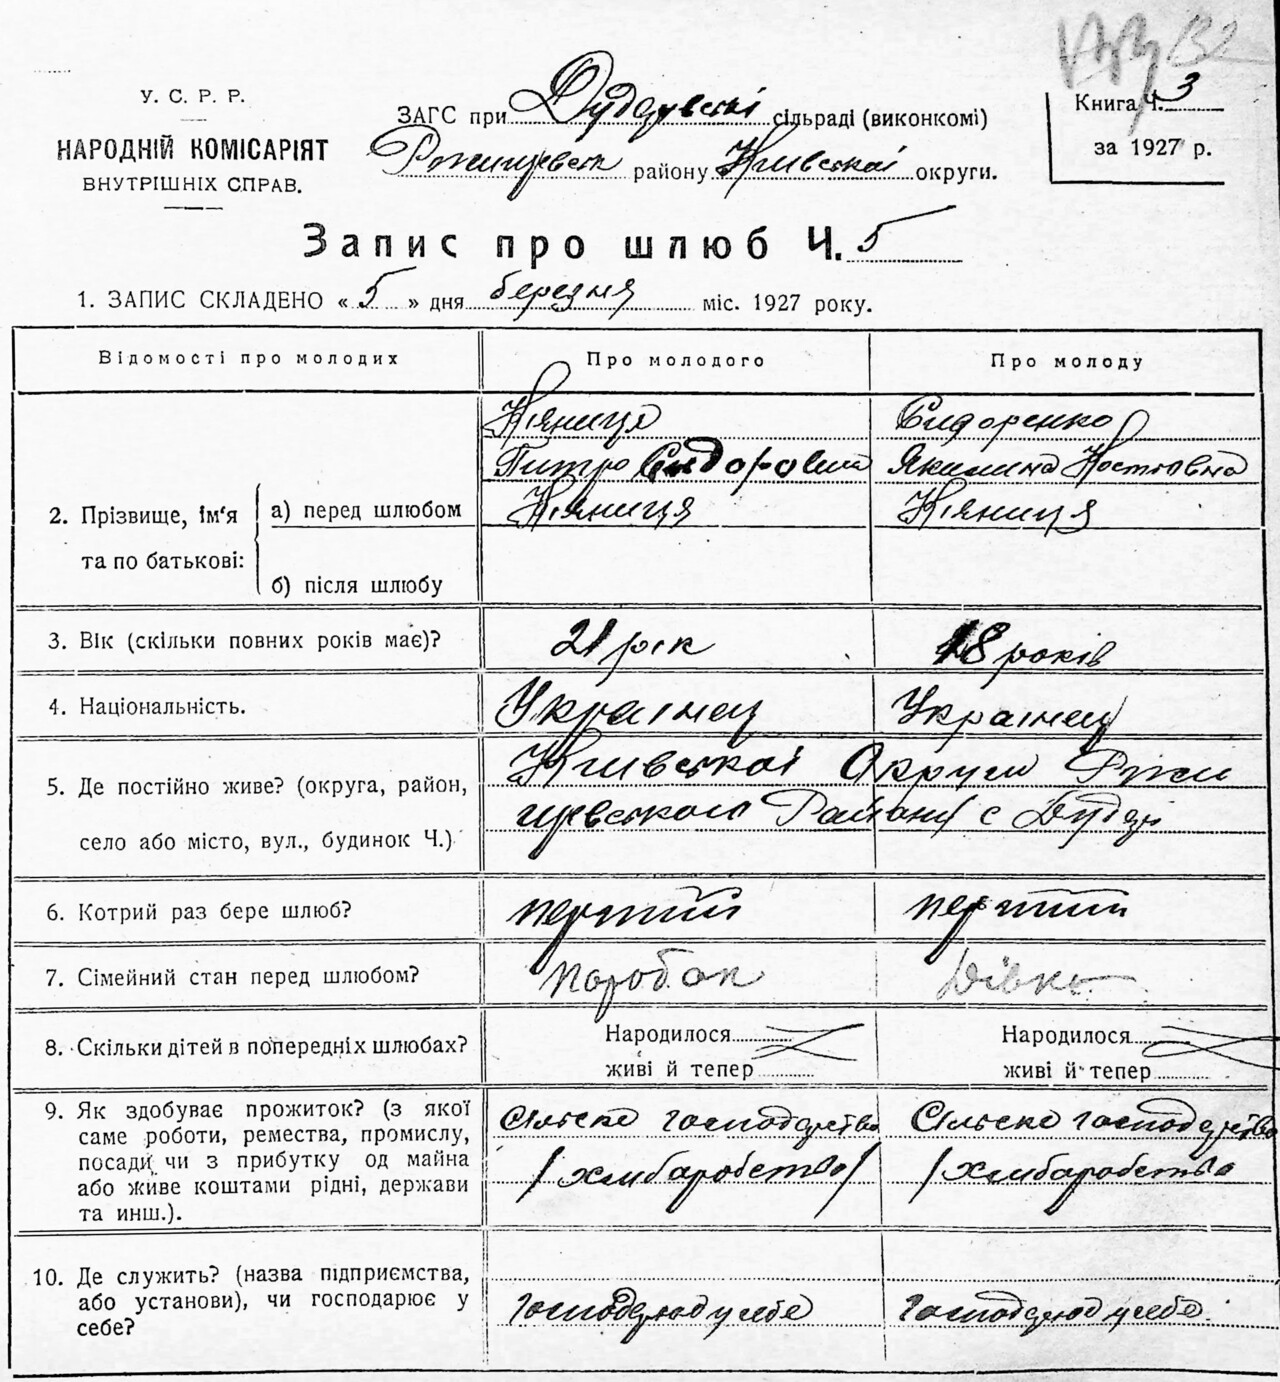 У. С. Р. Р.
НАРОДНІЙ КОМІСАРІЯТ
ВНУТРІШНІХ СПРАВ.
ЗАГС при сільраді (виконкомі)
району Київської округи.
Книга Ч. 3
за 1927 р.
Запис про шлюб Ч. 5
1. ЗАПИС СКЛАДЕНО « 5 » дня березня міс. 1927 року.
Відомості про молодих Про молодого Про молоду
2. Прізвище, ім'я та по батькові: а) перед шлюбом б) після шлюбу
Кияниця Сидоренко
Питро Сидорович Якилина Костівна
Кияниця Кияниця
3. Вік (скільки повних років має)? 21 рік 18 років
4. Національність. Українец Українец
5. Де постійно живе? (округа, район, село або місто, вул., будинок Ч.)
Київської Округи Ржи
щевського Району с
6. Котрий раз бере шлюб? перший перший
7. Сімейний стан перед шлюбом? паробок Дівка
8. Скільки дітей в попередніх шлюбах? Народилося Народилося
живі й тепер живі й тепер
9. Як здобуває прожиток? (з якої
саме роботи, ремества, промислу,
посади, чи з прибутку од майна
або живе коштами рідні, держави
та инш.).
Сільске господарство Сільске господарство
/хлибаробство/ /хлибаробство
10. Де служить? (назва підприємства,
або установи), чи господарює у
себе?
господарюю у себе господарюю у себе